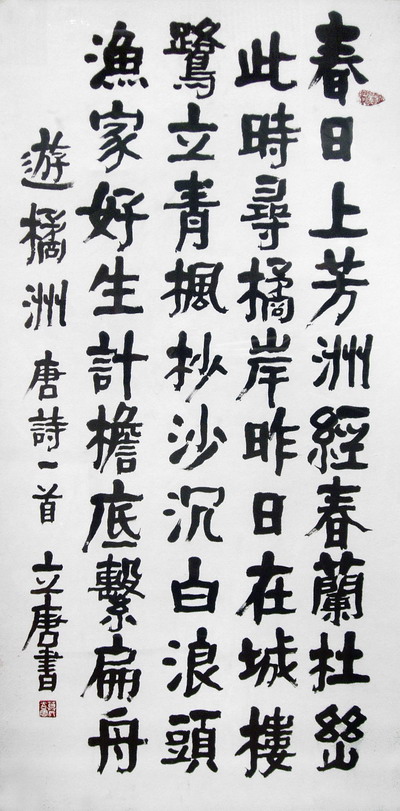 春日上芳洲經春蘭杜幽
此時尋橘岸昨日在城樓
鷺立青楓杪沙沉白浪頭
漁家好生計檐底繫扁舟
遊橘洲 唐詩一首 立唐書